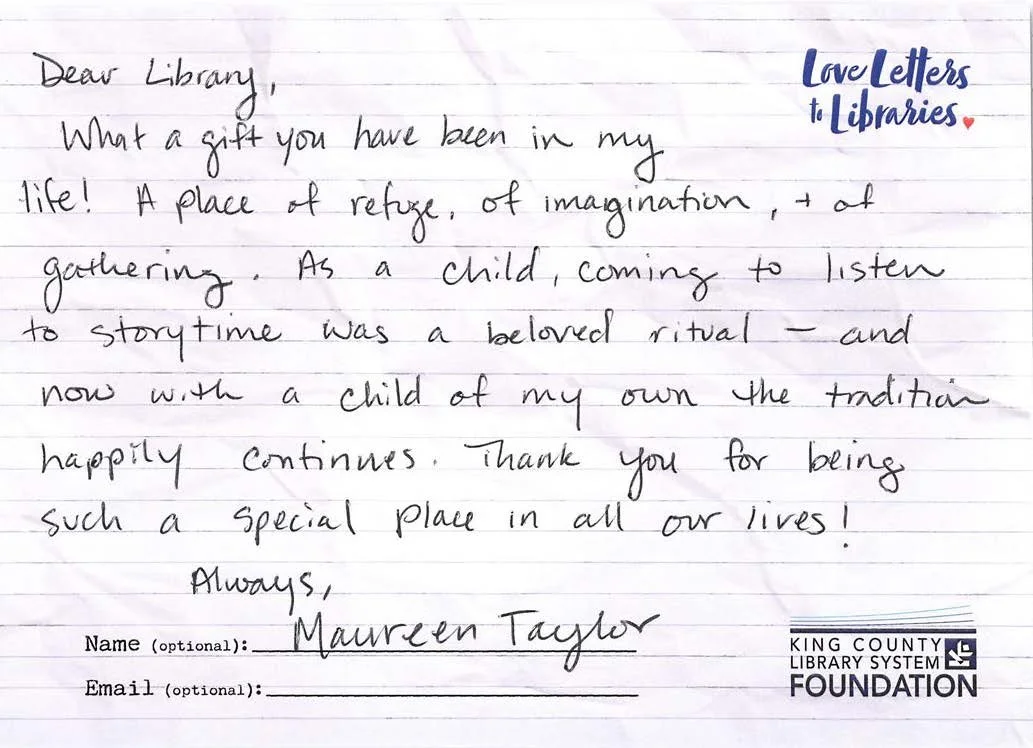 Dear Library,
Love Letters
to Libraries.
What a gift you have been in my
life! A place of refuge, of imagination, + of
gathering. As a child, coming to listen
to storytime was a beloved ritual — and
now with a child of my own the tradition
happily continues. Thank you for being
such a special place in all our lives!
Always,
Name (optional): Maureen Taylor
Email (optional):
KING COUNTY
LIBRARY SYSTEM
FOUNDATION